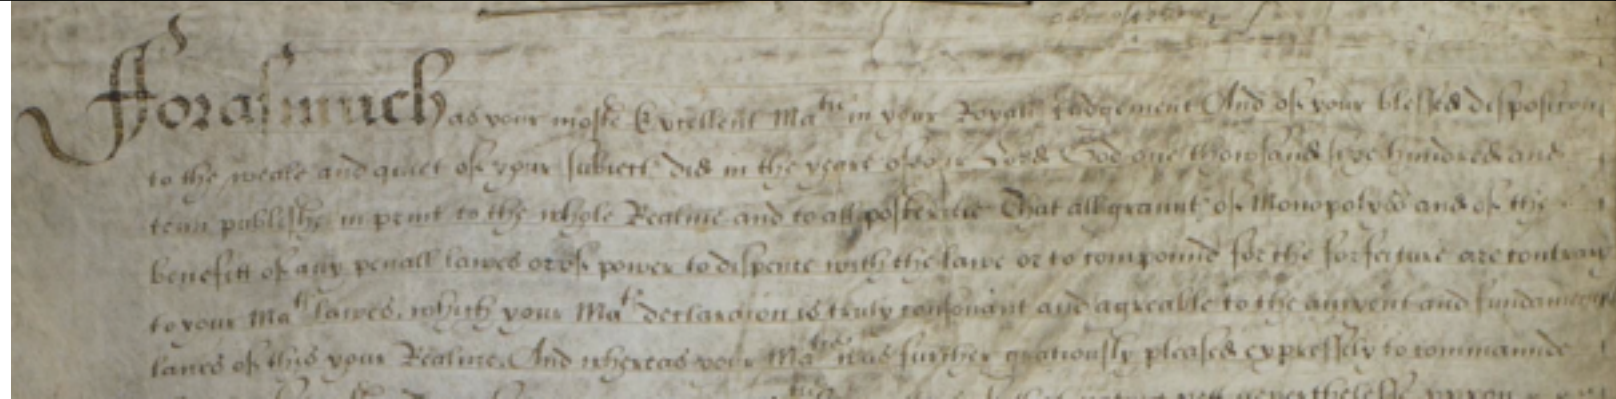 Fforasmuch as your moste Excellent Matie in your Royall Judgement And of your blessed disposicon
to the weale and quiet of your subiects did in the yeare of our Lord God one thowsand sixe hundred and
tenn publishe in print to the whole Realme and to all posteritie That all graunts of Monopolyes and of the
benefitt of any penall lawes or of power to dispence with the lawe or to compound for the forfeiture are contrary
to your Mats lawes, which your Mats declaracion is truly consonant and agreable to the auncient and fundamentall
lawes of this your Realme. And whereas your Matie was further graciously pleased expressely to commaunde
nevertheless uppon